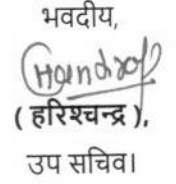 भवदीय,
( हरिश्चन्द्र ),
उप सचिव।